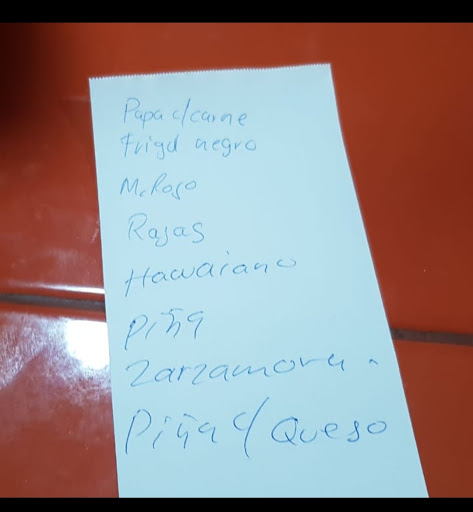 Papa c/carne
Frigol negro
M. Rojo
Rajas
Hawaiano
Piña
Zarzamora.
Piña c/ Queso